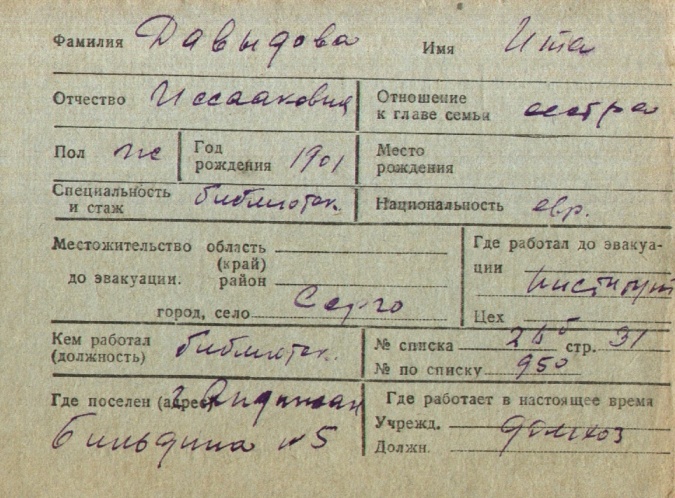 Фамилия Давыдова Имя Ита
Отчество Иссааковна Отношение к главе семьи сестра
Пол ж Год рождения 1901 Место рождения
Специальность и стаж библиотек. Национальность евр.
Местожительство до эвакуации. область (край)
район
город, село Серго
Где работал до эвакуации институт
Цех
Кем работал (должность) библиотек.
№ списка 26б стр. 31
№ по списку 950
Где поселен (адрес) г Андижан
№ 5
Где работает в настоящее время
Учрежд.
Должн.